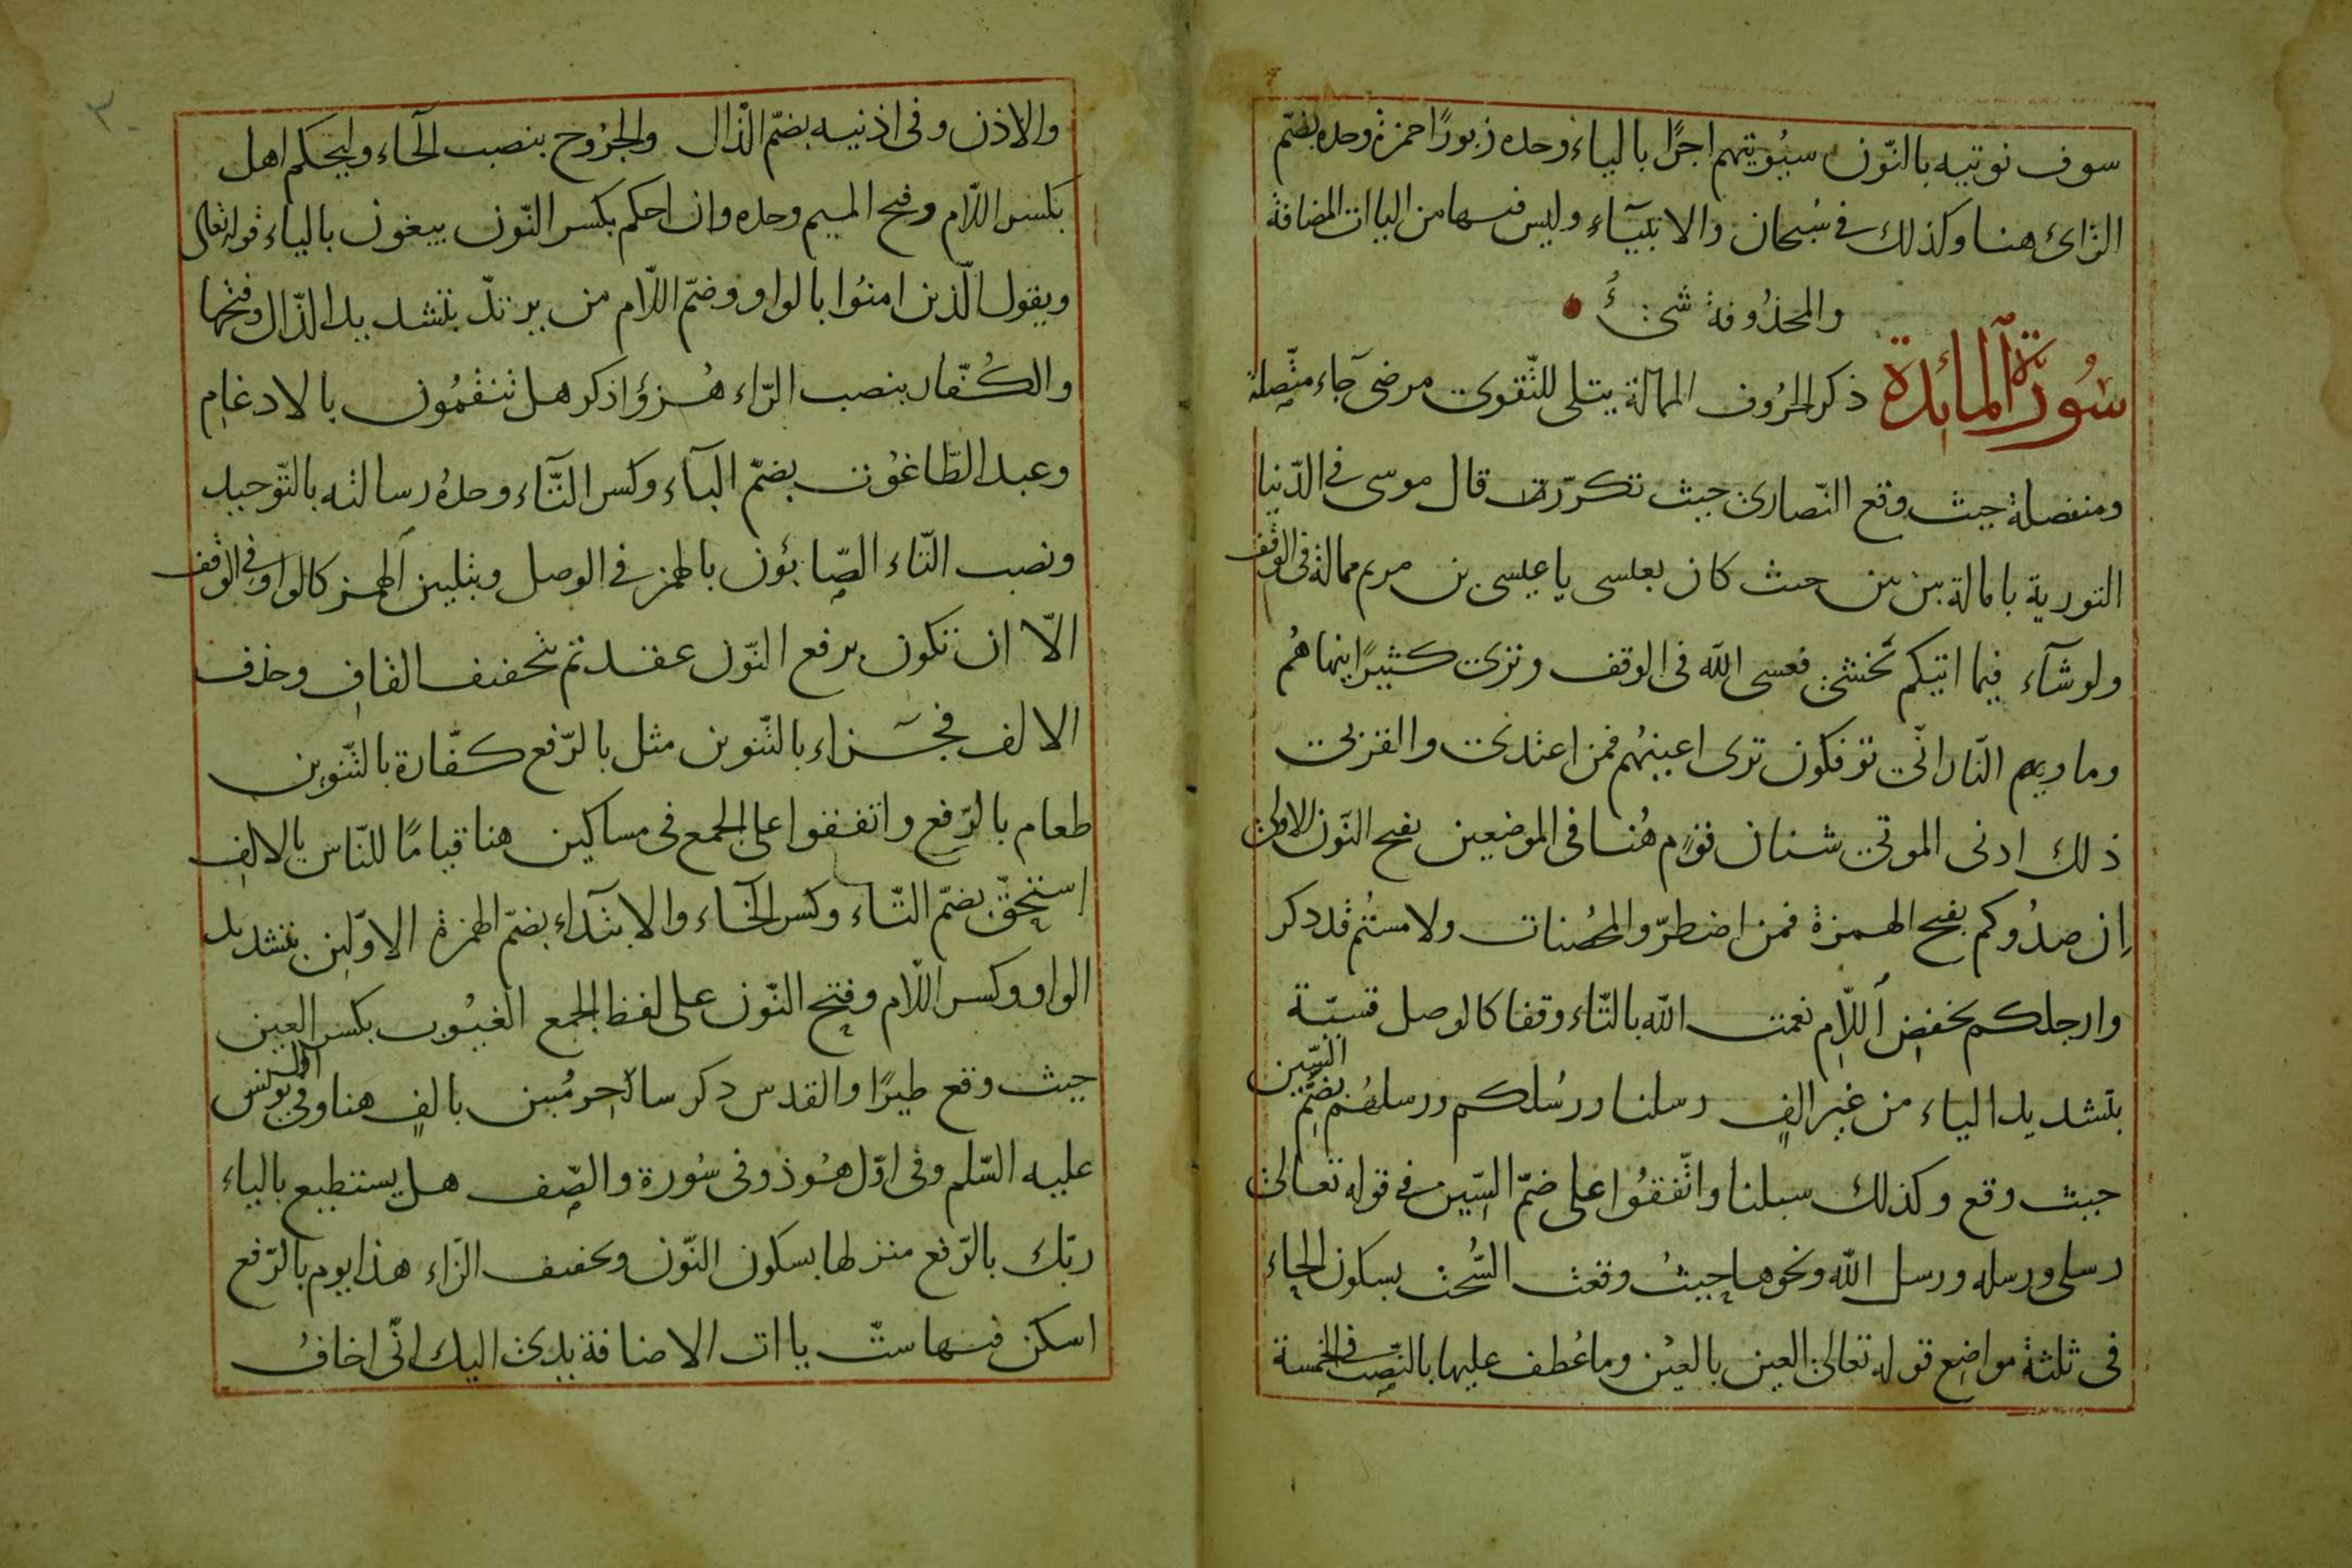 سوف نوتيه بالنّون سيُوتيهم اجرًا بالياء وحده زبورًا حمزة وحده بضمّ
الزّاى هنا وكذلك في سُبحان والانبيآء وليس فيها من الياات المضافة
والمحذُوفة شئ
سُورة المائدة ذكر الحرُوف الممالة يتلى للتّقوى مرضى جآء متّصلة
ومنفصلة حيث وقع النّصارى حيث تكرّرت قال موسى في الدّنيا
التورية بامالة بين بين حيث كان بعيسى يا عيسى بن مريم ممالة في الوقف
ولو شآء فيما اتيكم نخشى فعسى الله فى الوقف وترى كثيرًا ينهاهُم
وماويهم النّار انّى توفكون ترى اعينهُم فمن اعتدى والقربى
ذلك ادنى الموتى شنان قوم هُنا فى الموضعين بفتح النّون الاولى
اِن صدُوكم بفتح الهمزة فمن اضطرّ والمحُصنات ولامستُم قد ذكر
وارجلكم بخفضِ اللّامِ نعمت الله بالتّاء وقفا كالوصل قسيّة
بتشديد الياء من غيرِ الفٍ رسلنا ورُسلكم ورسلهُم بضَمِّ السّين
حيث وقع وكذلك سبلنا واتّفقُوا على ضمّ السّين في قوله تعالى
رسلى ورسله ورسل الله ونحوها حيثُ وقعت السُّحت بسكون الحاءِ
فى ثلثة مواضِع قوله تعالى العين بالعيُن وما عُطف عليها بالنّصِب فى الخمسة
والاذن وفى اذنيه بضمّ الذّال والجرُوح بنصب الحآء وليحكم اهل
بكسر اللّام وفتح الميم وحده وان احكم بكسر النّون يبغون بالياء قوله تعالى
ويقول الّذين امنُوا بالواو وضمّ اللّام من يرتدّ بتشديد الدّال وفتحها
والكُفّار بنصب الرّاء هُزؤًا ذكر هل تنقمُون بالادغامِ
وعبد الطّاغوُت بضمّ البآء وكسر التّاء وحدهُ رسالته بالتّوحيد
ونصب التّاء الصّابئون بالهمزِ في الوصل وبتليين الهمز كالواو في الوقف
الّا ان تكون برفع النّون عقدتم بتخفيف القافِ وحذف
الالف فجزاء بالتّنوين مثل بالرّفع كفّارة بالتّنوين
طعام بالرّفعِ واتفقوا على الجمع فى مساكين هنا قيامًا للنّاس بالالفِ
اِستحِقّ بضمّ التّاء وكسر الحآء والابتدآء بضمّ الهمزة الاوّلين بتشديد
الواو وكسر اللّام وفتحِ النّون على لفظِ الجمع الغيُوب بكسر العين
حيث وقع طيرًا والقدس ذكر ساحِر مُبين بالفٍ هنا وفي اوّل يونس
عليه السّلم وفى اوّل هُود وفى سُورة والصّفِ هل يستطيع بالياء
ربّك بالرّفع منزلها بسكون النّون وتخفيف الزّاء هذا يوم بالرّفع
اسكن فيها ستّ ياات الاضافة يدى اليك انّى اخافُ